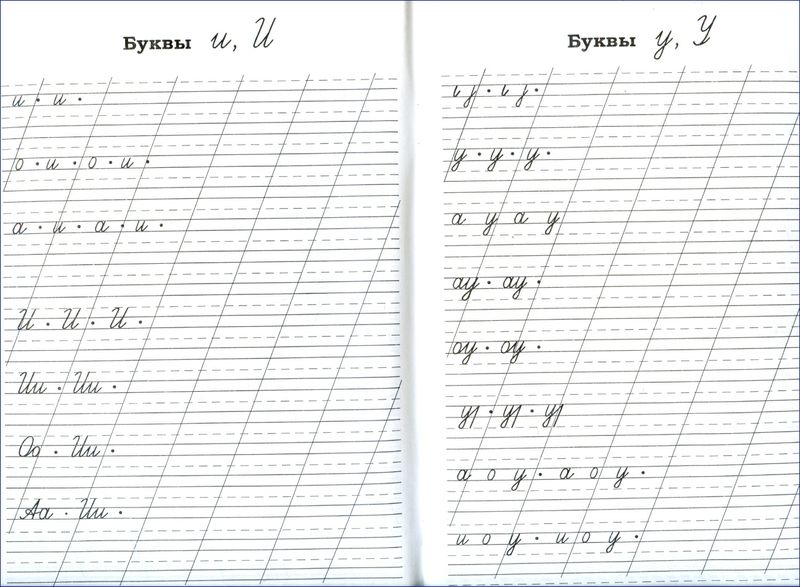 Буквы и, И
и · и ·
о · и · о · и ·
а · и · а · и ·
И · И · И ·
Ии · Ии ·
Оо · Ии ·
Аа · Ии ·
Буквы у, У
у · у · у ·
а у а у
ау · ау ·
оу · оу ·
а о у · а о у ·
и о у · и о у ·